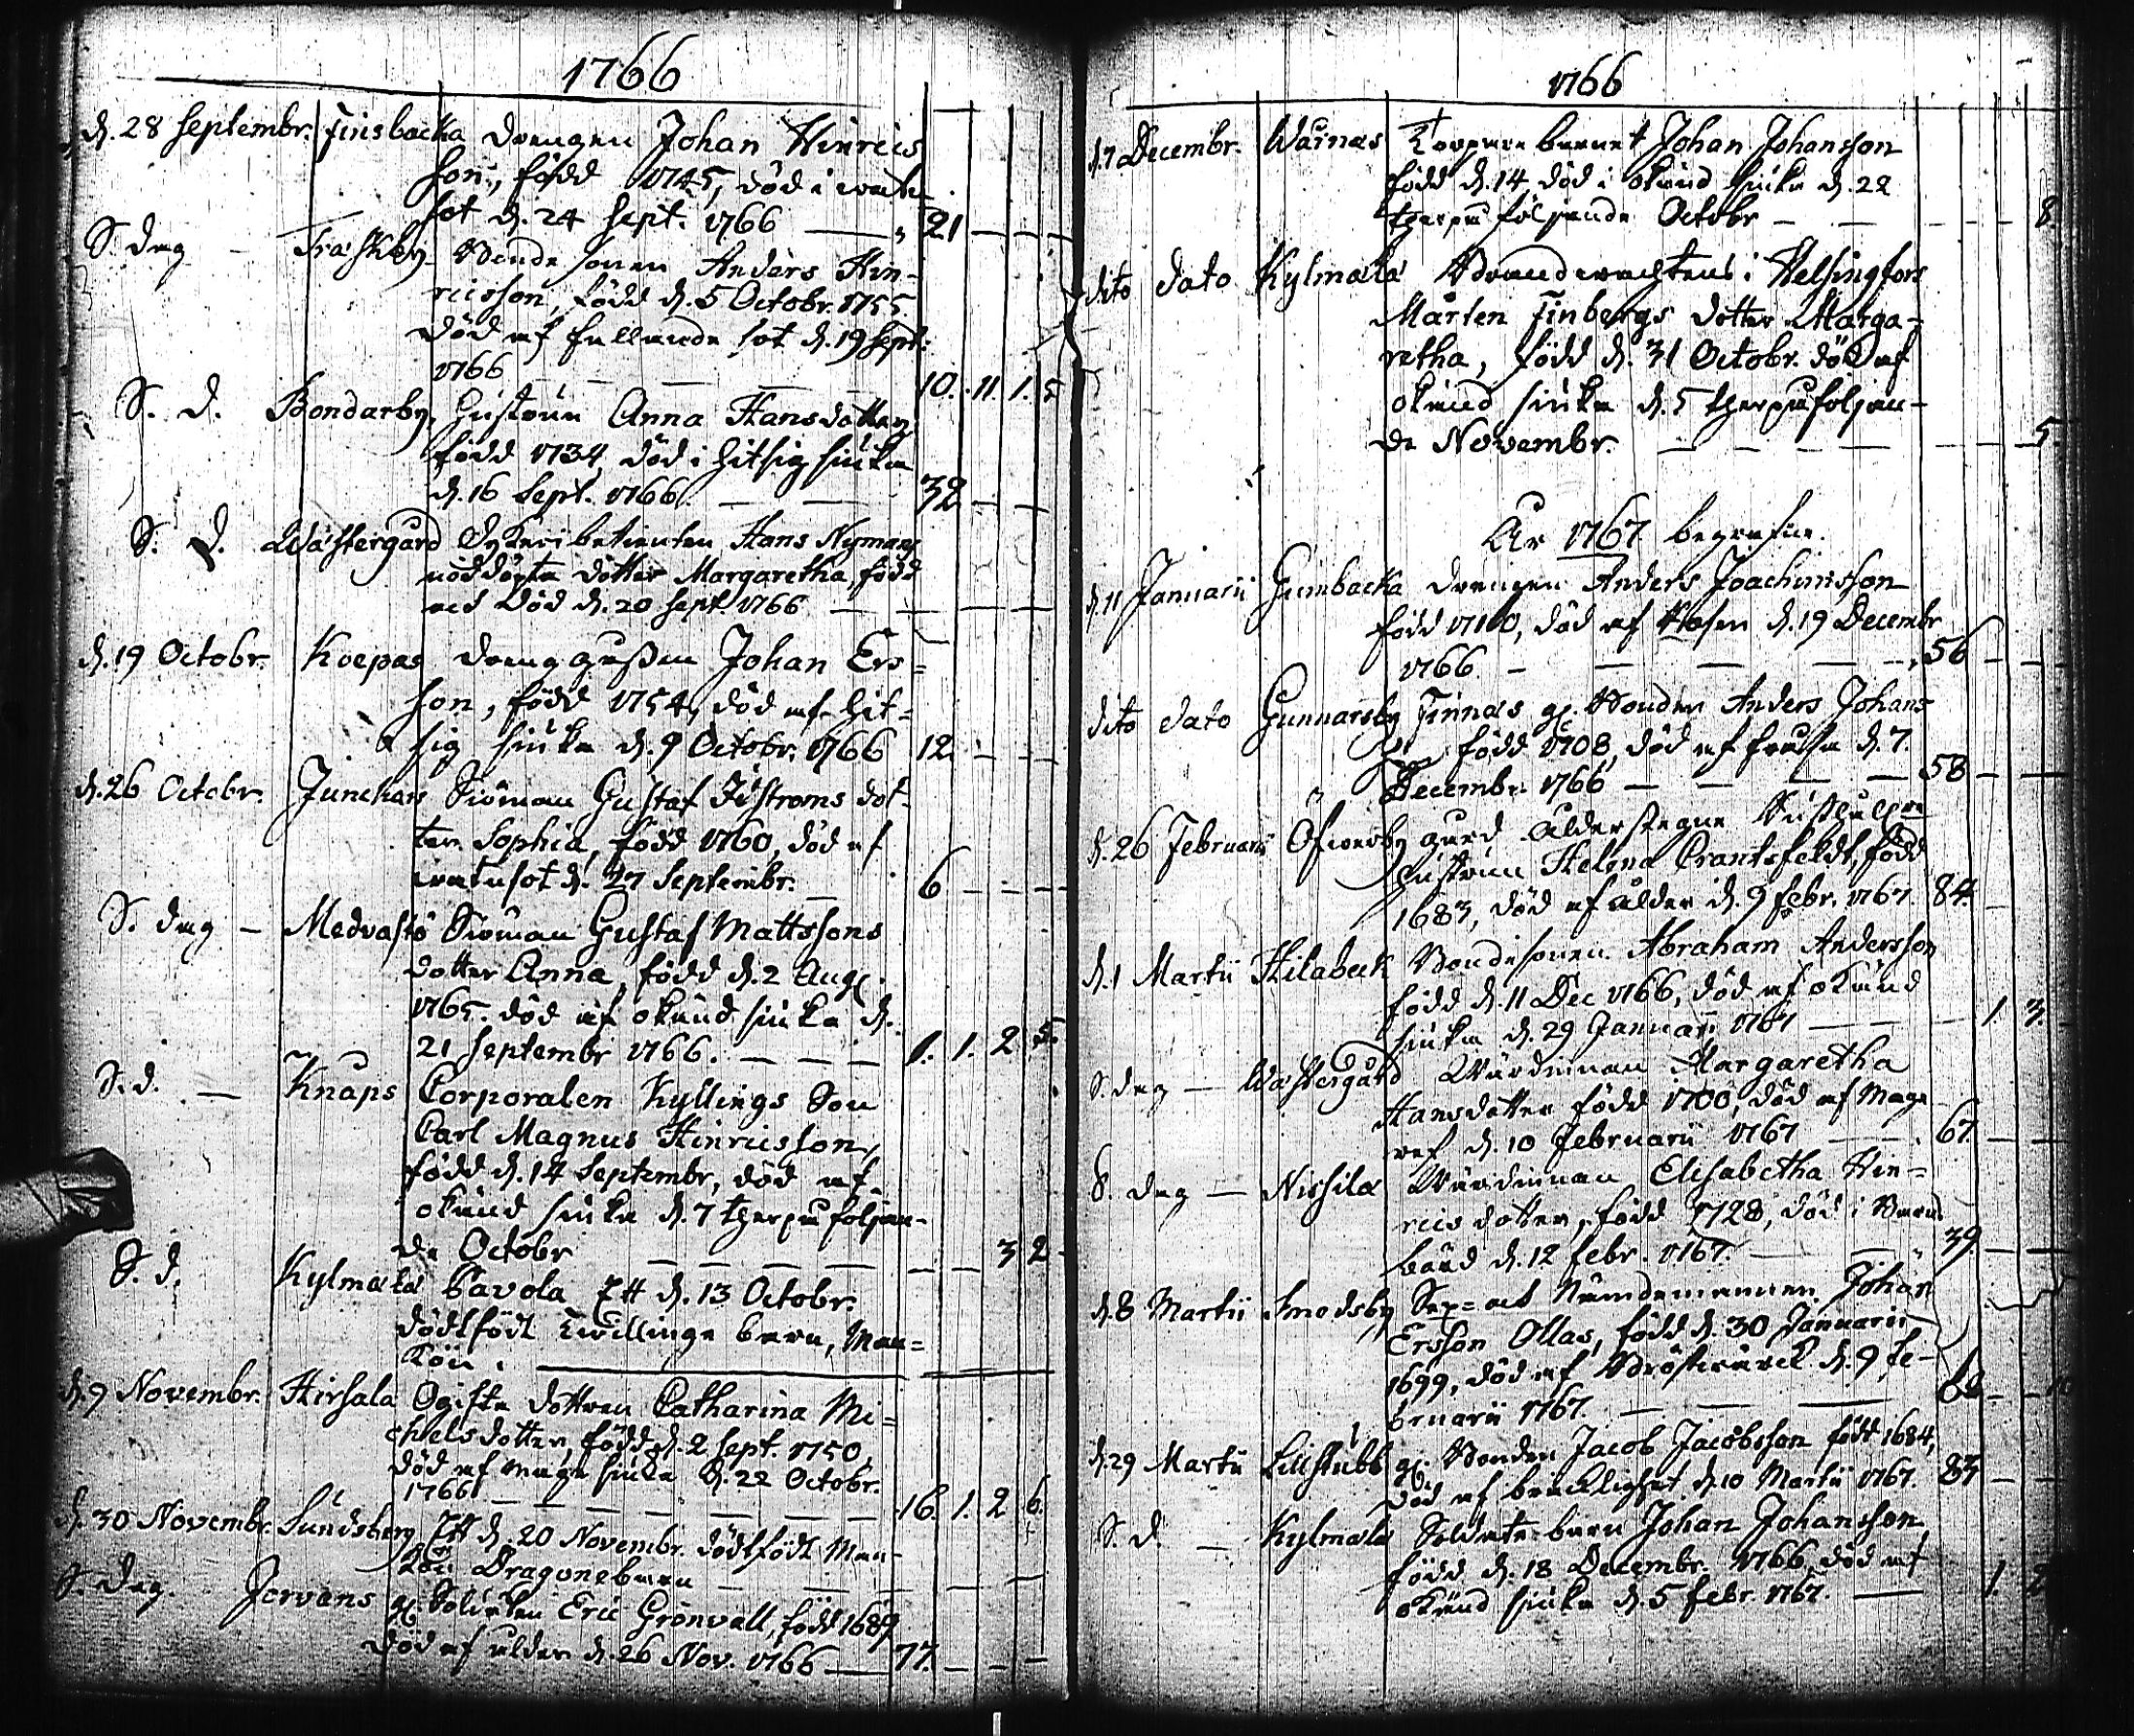 1766
d. 28 Septembr. Finsbacka Drengen Johan Hinrics
son, född 1745, död i
sot d. 24 Sept. 1766 — 21 — — —
S. dag — Träskby Bonde sonen Anders Hin-
ricsson, född d. 5 Octobr. 1755.
död af fallande sot d. 19 Sept:
1766 — — — 10. 11. 1. 5
S. d. Bondarby, Hustrun Anna Hansdotter,
född 1734, död i hitsig siuka
d. 16 Sept. 1766. — — 32 — — —
S. d. Wästergård betienten Hans Nymans
nöddöpta dotter Margaretha, född
och död d. 20 Sept. 1766 — — — —
d. 19 Octobr. Koepas Dreng gossen Johan Ers=
son, född 1754, död af hit=
sig siuka d. 9 Octobr. 1766 12 — — —
d. 26 Octobr. Junckars Siöman Gustaf dot-
ter Sophia, född 1760, död af
d. 27 Septembr. — 6 — — —
S. dag — Medvastö Siöman Gustaf Mattssons
dotter Anna, född d. 2 Aug.
1765. död af okänd siuka d.
21 Septembr 1766. — — — 1. 1. 2 5.
S. d. — Knaps Corporalen Kyllings Son
Carl Magnus Hinricsson,
född d. 14 Septembr, död af
okänd siuka d. 7 therpå följan-
de Octobr — — — — — — 3 2
S. d. Kylmälä Cavola Ett d. 13 Octobr.
dödfödt Twillinge barn, Man=
kön. —
d. 9 Novembr. Hirsala Ogifta dottren Catharina Mi=
chelsdotter, född d. 2 Sept. 1750,
död af siuka d. 22 Octobr.
1766 — — — — — — 16. 1. 2 6.
d. 30 Novembr. Sundsberg Ett d. 20 Novembr. dödfödt Man-
kön Dragonebarn — — — — —
S. dag. Jervans gl. Soldaten Eric Grönvall, född 1689
död af ålder d. 26 Nov. 1766 — 77. — — —
1766
d. 7 Decembr. Wärnäs barnet Johan Johansson
född d. 14, död i okänd siuka d. 22
therpå följande Octobr — — — — — 8
dito dato Kylmälä Brandwachtens i Helsingfors
Mårten Finbergs dotter Marga-
retha, född d. 31 Octobr. död af
okänd siuka d. 5 therpåföljan-
de Novembr. — — — — — — 5
År 1767 begrafne.
d. 11 Januarii Gumbacka Drengen Anders Joachimsson
född 1710, död af d. 19 Decembr
1766 — — — — — 56 — — —
dito dato Gunnarsby Finnas gl. Bonden Anders Johans
född 1708, död af d. 7.
Decembr. 1766 — — — 58 — —
d. 26 Februarii Öfwerby gård Ålderstegna
Hustrun Helena Crantsfeldt, född
1683, död af ålder d. 9 Febr. 1767 84. —
d. 1 Martii Hilabeck Bondesonen Abraham Andersson
född d. 11 Dec 1766, död af okänd
siuka d. 29 Januarii 1767 — — 1. 3.
S. dag — Wästergård Wärdinnan Margaretha
Hansdotter född 1700, död af
d. 10 Februarii 1767 — — 67 — —
S. dag — Nissilä Wärdinnan Elisabetha Hin=
rics dotter, född 1728, död i Barn
börd d. 12 Febr. 1767. — — 39 — —
d. 8 Martii Smedsby Sex= och Nämdemannen Johan
Ersson Ollas, född d. 30 Januarii
1699, död af Bröstwärck d. 9 Fe-
bruarii 1767. — — —
d. 29 Martii Lillstubb gl. Bonden Jacob Jacobsson född 1684,
död af bräcklighet d. 10 Martii 1767. 83 — —
S. d. — Kylmälä Soldate barn Johan Johansson,
född d. 18 Decembr. 1766, död af
okänd siuka d. 5 Febr. 1767. — 1.